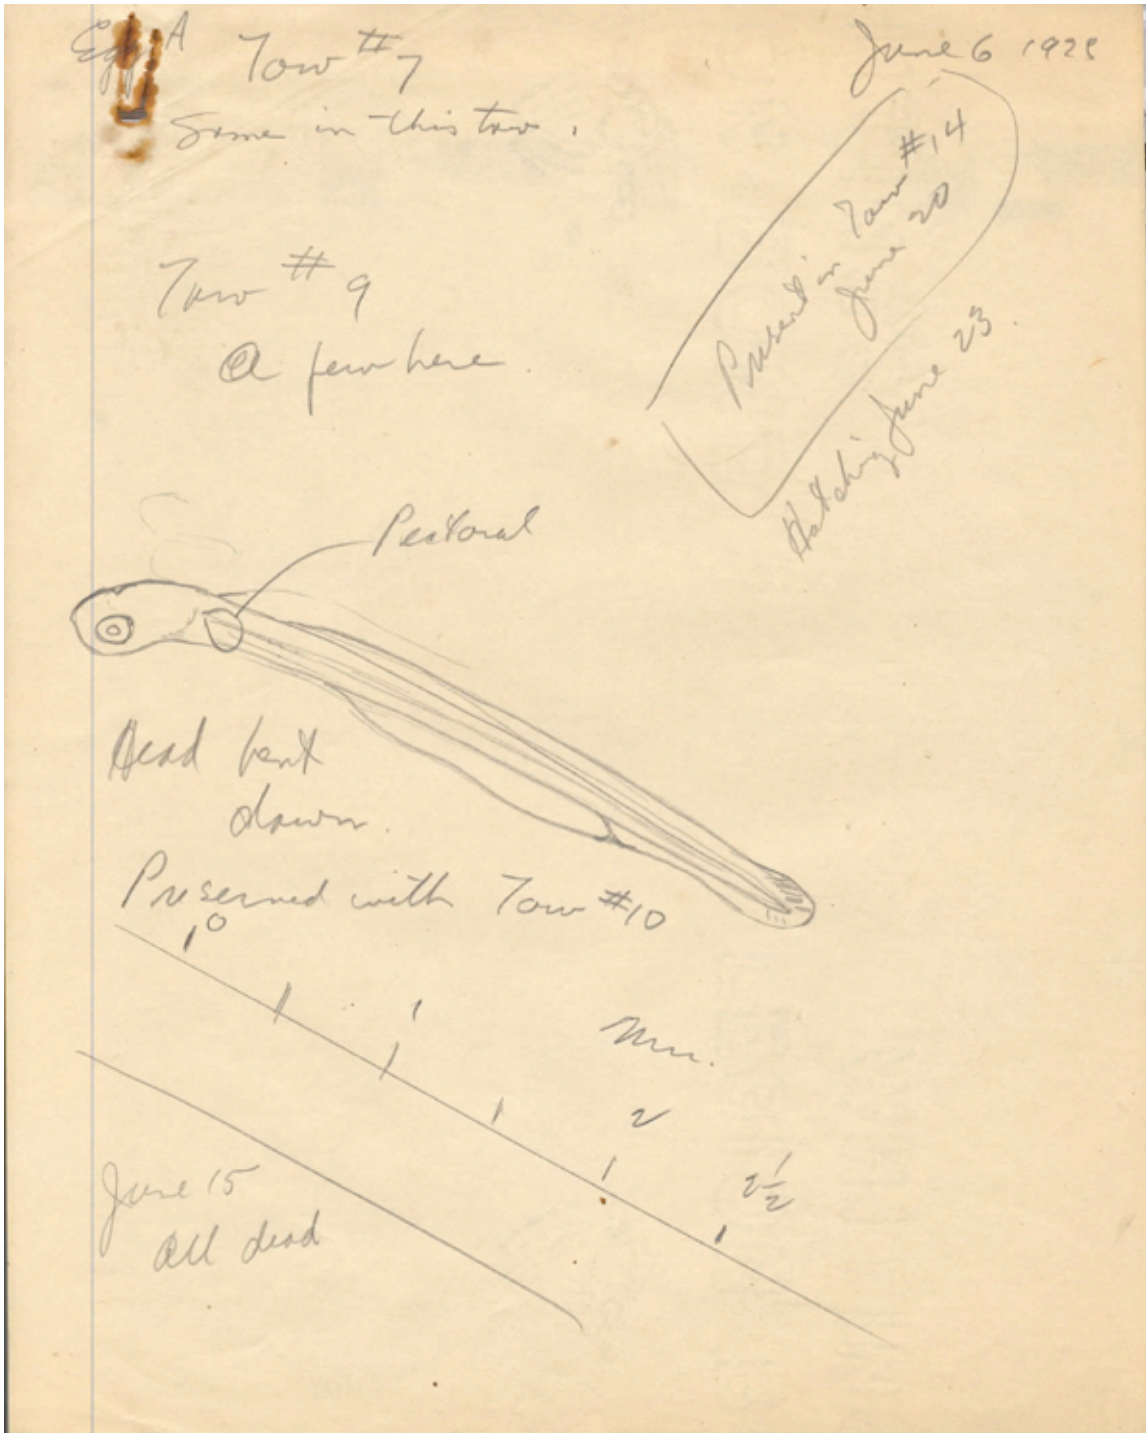 Egg A
Tow #7
June 6 1928
Some in this tow.
Present in Tow #14
June 20
Hatching June 23.
Tow #9
A few here.
Pectoral
Head bent
down.
Preserved with Tow #10
0
1
Mm.
2
2 1/2
June 15
All dead